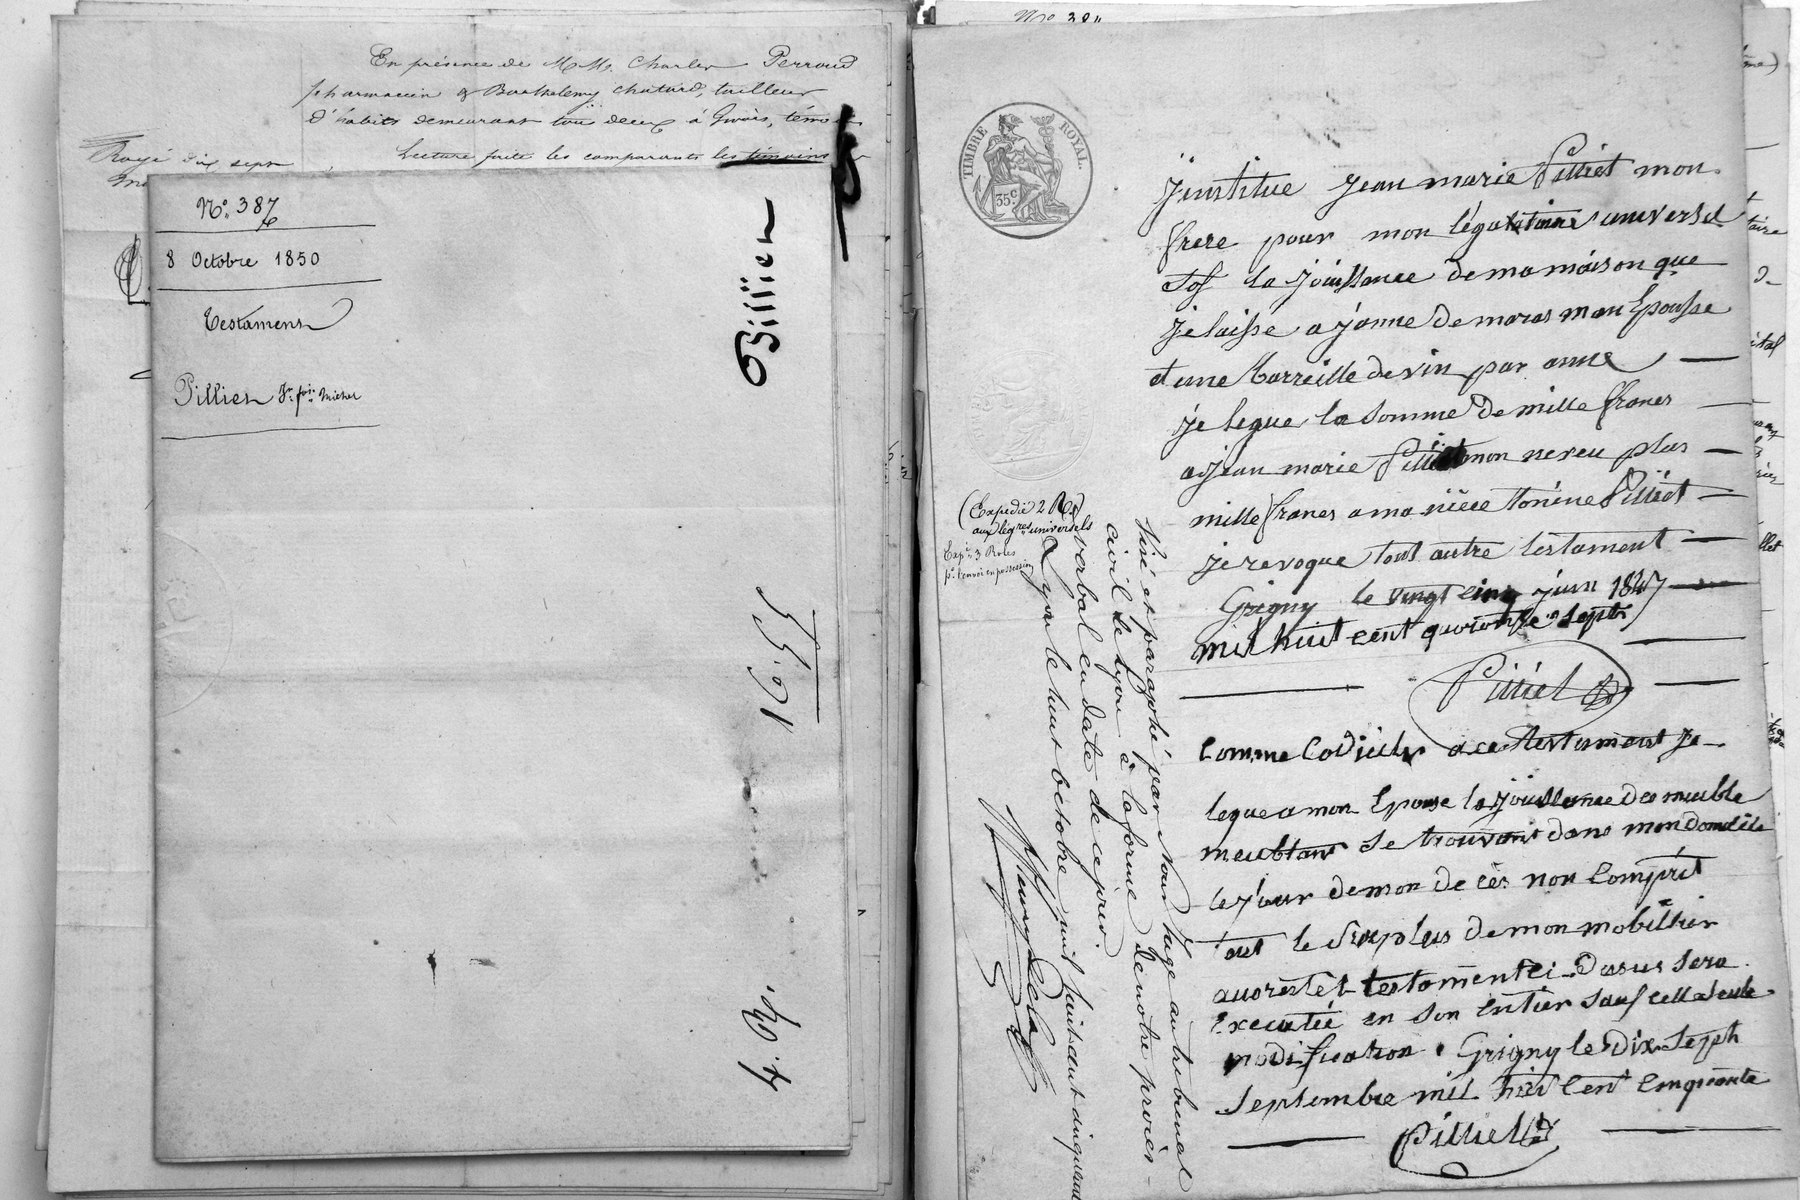 En présence de M.M. Charles Perroud
pharmacien & Barthelemy Chatard, tailleur
d'habits demeurant tous deux à Givors, témoins
Lecture faite les comparants les témoins
Rayé dix sept
N° 387
8 Octobre 1850
Testament
Pilliet
Michel
16.55
N° 38
TIMBRE ROYAL.
35c
j'institue jean marie Pilliet mon
frere pour mon légatataire universel
sof la jouissance de ma maison que
je laisse a janne demaras mon Epousse
et une barreille de vin par anne
je legue la somme de mille francs
a jean marie Pilliet mon neveu plus
mille francs a ma niece Pilliet
je revoque tout autre testament
Grigny le vingt cinq juin 1847
mil huit cent quarante sept
Pilliet
Comme Codicile a ce testament je
legue a mon Epouse la jouissance des meuble
meublant se trouvant dans mon domicile
le jour de mon decès non Comprit
tout le surplus de mon mobillier
au reste le testament ci-dessus sera
executée en son entier sauf cella seule
modification. Grigny le dix sept
septembre mil huit cent cinquante
Pilliet
(Expedié 2 R.
aux lég.res universels
Exp.é 3 Roles
p.r l'envoi en possession
Visé et paraphé par Nous Juge au tribunal
civil de Lyon à la forme de notre procès-
verbal en date de ce jour.
Lyon le huit octobre mil huit cent cinquante